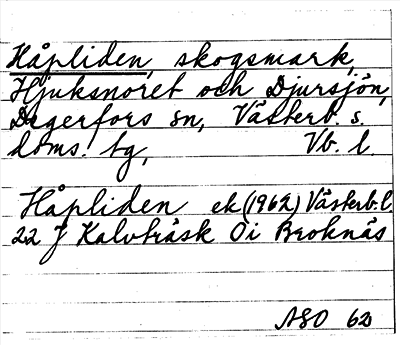 Håpliden, skogsmark,
Hjuksnoret och Djursjön,
Degerfors sn, Västerb. s.
doms. tg, Vb. l.
Håpliden ek (1962) Västerb. l.
22 J Kalvträsk Öi Broknäs
ASO 62